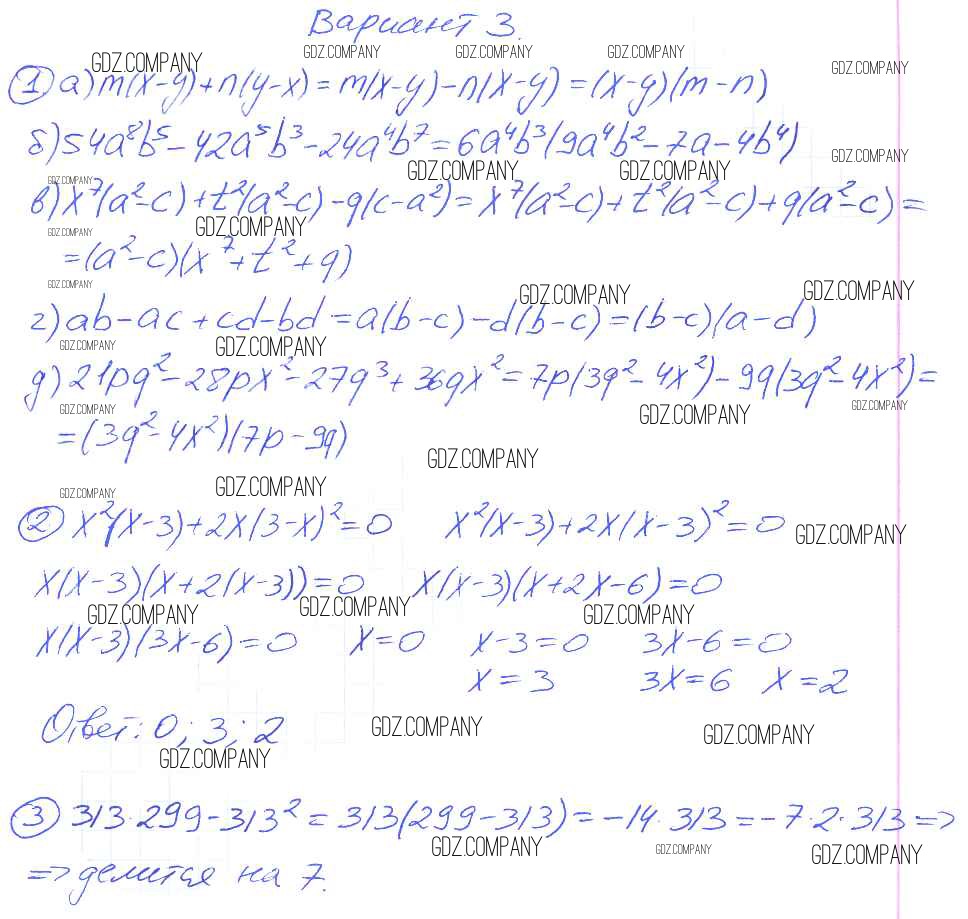 Вариант 3.
GDZ.COMPANY GDZ.COMPANY GDZ.COMPANY GDZ.COMPANY GDZ.COMPANY
① а) m(x-y)+n(y-x)=m(x-y)-n(x-y)=(x-y)(m-n)
б) 54a⁸b⁵-42a⁵b³-24a⁴b⁷=6a⁴b³(9a⁴b²-7a-4b⁴)
GDZ.COMPANY GDZ.COMPANY GDZ.COMPANY
GDZ.COMPANY
в) x⁷(a²-c)+t²(a²-c)-q(c-a²)=x⁷(a²-c)+t²(a²-c)+q(a²-c)=
GDZ.COMPANY GDZ.COMPANY
=(a²-c)(x⁷+t²+q)
GDZ.COMPANY GDZ.COMPANY GDZ.COMPANY
г) ab-ac+cd-bd=a(b-c)-d(b-c)=(b-c)(a-d)
GDZ.COMPANY GDZ.COMPANY
д) 21pq²-28px²-27q³+36qx²=7p(3q²-4x²)-9q(3q²-4x²)=
GDZ.COMPANY GDZ.COMPANY GDZ.COMPANY
=(3q²-4x²)(7p-9q)
GDZ.COMPANY
GDZ.COMPANY GDZ.COMPANY
② x²(x-3)+2x(3-x)²=0 x²(x-3)+2x(x-3)²=0
GDZ.COMPANY
x(x-3)(x+2(x-3))=0 x(x-3)(x+2x-6)=0
GDZ.COMPANY GDZ.COMPANY GDZ.COMPANY
x(x-3)(3x-6)=0 x=0 x-3=0 3x-6=0
x=3 3x=6 x=2
Ответ: 0; 3; 2
GDZ.COMPANY GDZ.COMPANY
GDZ.COMPANY
③ 313·299-313²=313(299-313)=-14·313=-7·2·313=>
GDZ.COMPANY GDZ.COMPANY GDZ.COMPANY
=> делится на 7.